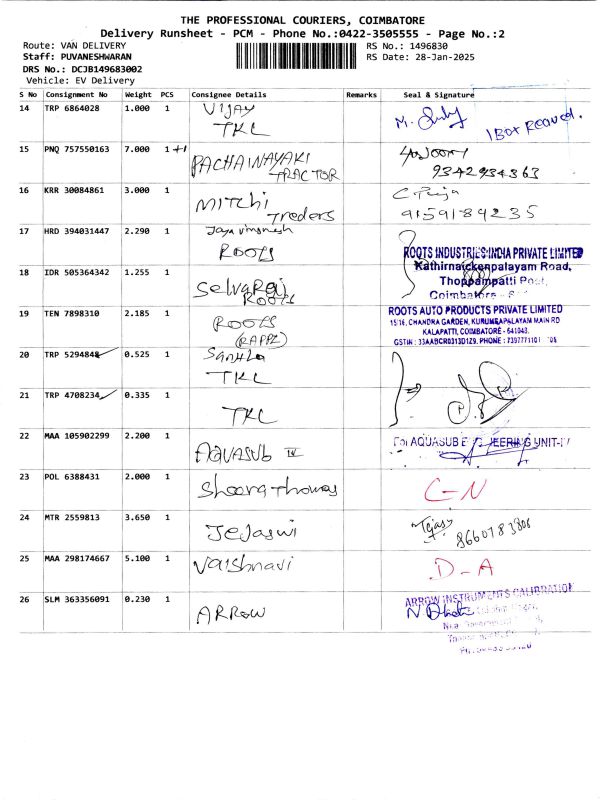 THE PROFESSIONAL COURIERS, COIMBATORE
Delivery Runsheet - PCM - Phone No.:0422-3505555 - Page No.:2
Route: VAN DELIVERY
Staff: PUVANESHWARAN
DRS No.: DCJB149683002
Vehicle: EV Delivery
RS No.: 1496830
RS Date: 28-Jan-2025
S No Consignment No Weight PCS Consignee Details Remarks Seal & Signature
14 TRP 6864028 1.000 1 VIJAY
TKL
1 Box Received.
15 PNQ 757550163 7.000 1 +1 PACHAINAYAKI
TRACTOR
9342934363
16 KRR 30084861 3.000 1 MITCHI
Treders
C. Puja
9159189235
17 HRD 394031447 2.290 1
ROOTS
ROOTS INDUSTRIES INDIA PRIVATE LIMITED
Kathirnaickenpalayam Road,
Thoppampatti Post,
Coimbatore -
18 IDR 505364342 1.255 1 Selvaraj
ROOTS
19 TEN 7898310 2.185 1 ROOTS
(RAPPL)
ROOTS AUTO PRODUCTS PRIVATE LIMITED
15/16, CHANDRA GARDEN, KURUMBAPALAYAM MAIN RD
KALAPATTI, COIMBATORE - 641048.
GSTIN : 33AABCR0313D1Z9, PHONE :
20 TRP 5294848 0.525 1
TKL
21 TRP 4708234 0.335 1
TKL
22 MAA 105902299 2.200 1 AQUASUB IV
For AQUASUB ENGINEERING UNIT-IV
23 POL 6388431 2.000 1 Sheeragthomas
C-N
24 MTR 2559813 3.650 1 Jejaswi
Tejas
8660783808
25 MAA 298174667 5.100 1 Vaishnavi
D-A
26 SLM 363356091 0.230 1 ARROW
ARROW INSTRUMENTS CALIBRATION